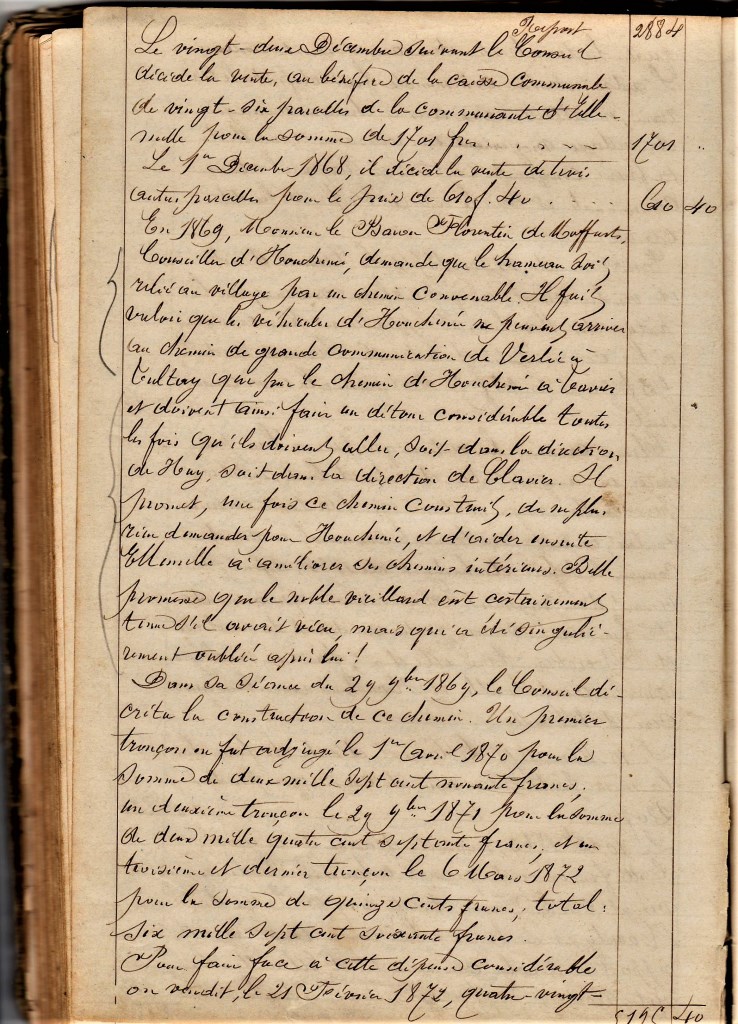 Report 2884
Le vingt-deux Décembre suivant le Conseil
décide la vente, au bénéfice de la caisse communale
de vingt-six parcelles de la communauté d'Elle-
melle pour la somme de 1701 frs. . . . . 1701 "
Le 1er Décembre 1868, il décide la vente de trois
autres parcelles pour le prix de 610 f. 40 . . . . 610 40
En 1869, Monsieur le Baron Florentin de Moffarts,
Conseiller d'Houchenée, demande que le hameau soit
relié au village par un chemin convenable. Il fait
valoir que les véhicules d'Houchenée ne peuvent arriver
au chemin de grande communication de Verlée à
Tultay que par le chemin d'Houchenée à Tavier
et doivent ainsi faire un détour considérable toutes
les fois qu'ils doivent aller, soit dans la direction
de Huy, soit dans la direction de Clavier. Il
promet, une fois ce chemin construit, de ne plus
rien demander pour Houchenée, et d'aider ensuite
Ellemelle à améliorer ses chemins intérieurs. Belle
promesse que le noble vieillard eût certainement
tenue s'il avait vécu, mais qui a été singuliè-
rement oubliée après lui !
Dans sa séance du 29 9bre 1869, le Conseil dé-
créta la construction de ce chemin. Un premier
tronçon en fut adjugé le 1er Avril 1870 pour la
somme de deux mille sept cent nonante francs,
un deuxième tronçon le 29 9bre 1871 pour la somme
de deux mille quatre cent septante francs, et un
troisième et dernier tronçon le 6 Mars 1872
pour la somme de quinze cents francs, total :
six mille sept cent soixante francs.
Pour faire face à cette dépense considérable
on vendit, le 21 Février 1872, quatre-vingt-
5195 40